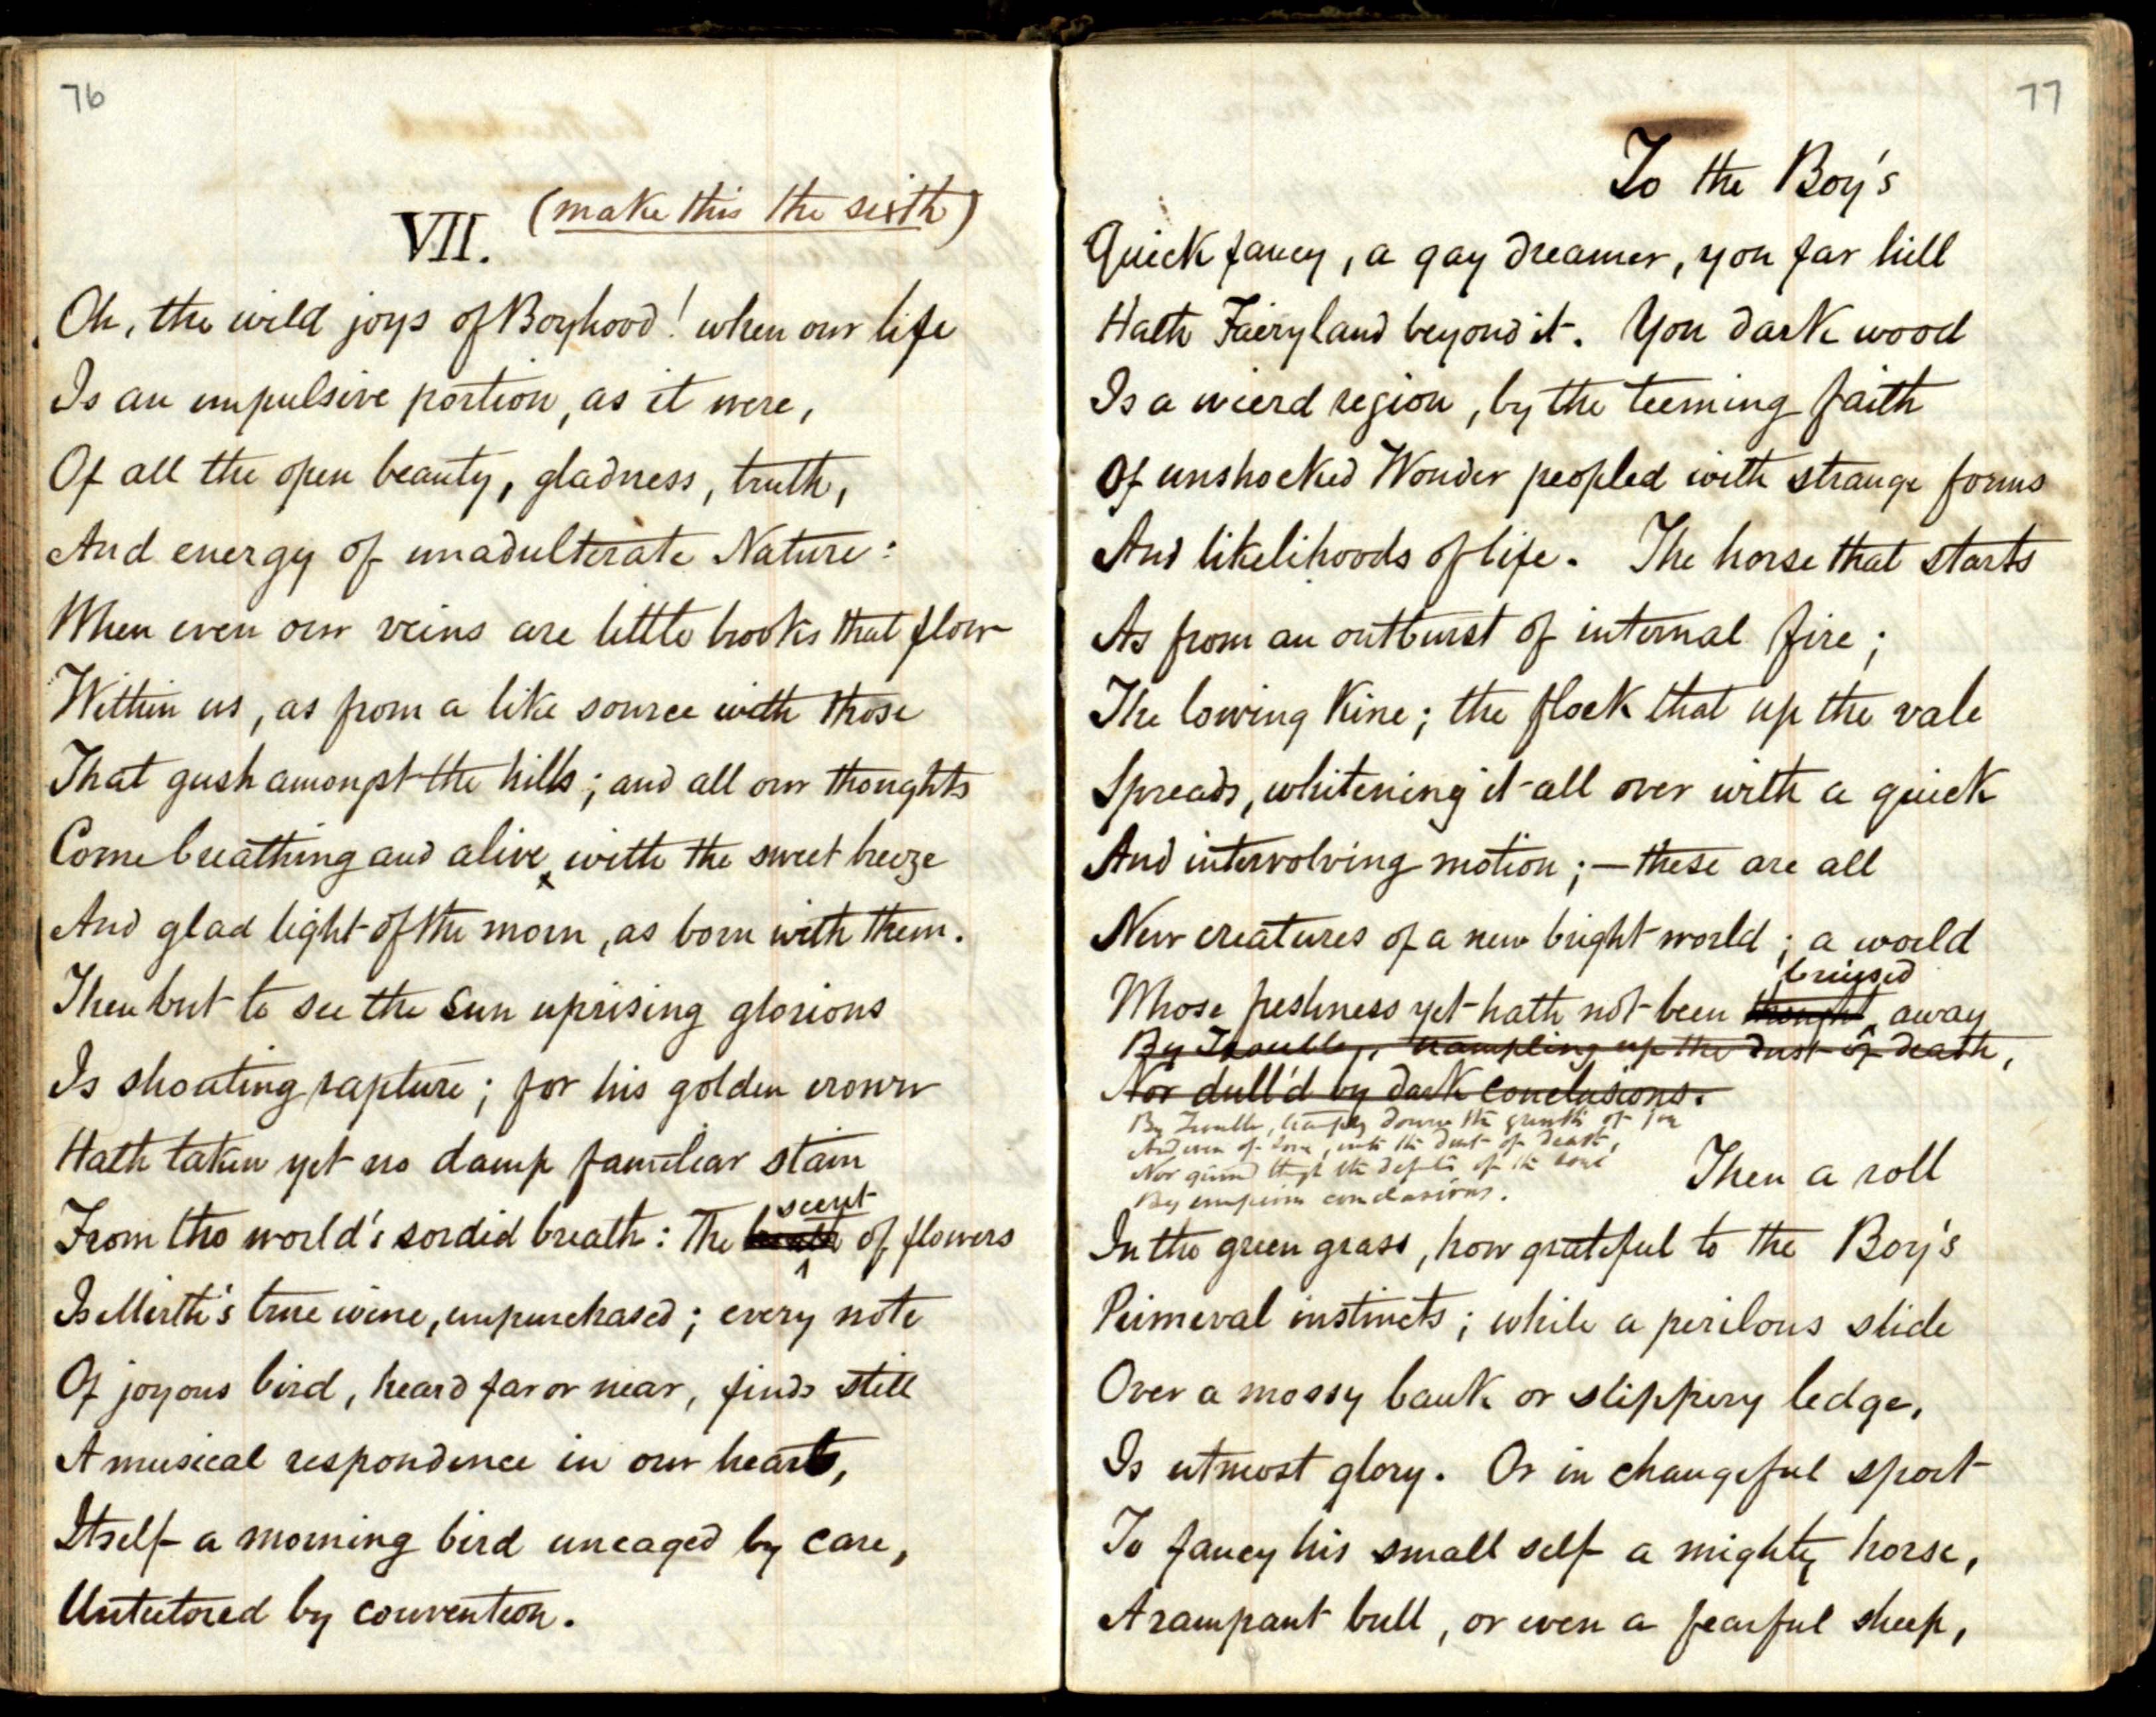 76
VII. (make this the sixth)
Oh, the wild joys of Boyhood! when our life
Is an impulsive portion, as it were,
Of all the open beauty, gladness, truth,
And energy of unadulterate Nature:
When even our veins are little brooks that flow
Within us, as from a like source with those
That gush amongst the hills; and all our thoughts
Come breathing and alive, with the sweet breeze
And glad light of the morn, as born with them.
Then but to see the Sun uprising glorious
Is shouting rapture; for his golden crown
Hath taken yet no damp familiar stain
scent
From the world's sordid breath: The breath of flowers
Is Mirth's true wine, unpurchased; every note
Of joyous bird, heard far or near, finds still
A musical respondence in our hearts,
Itself a morning bird uncaged by care,
Untutored by convention.
77
To the Boy's
Quick fancy, a gay dreamer, yon far hill
Hath Fairyland beyond it. Yon dark wood
Is a wierd region, by the teeming faith
Of unshocked Wonder peopled with strange forms
And likelihoods of life. The horse that starts
As from an outburst of internal fire;
The lowing Kine; the flock that up the vale
Spreads, whitening it all over with a quick
And intervolving motion; — these are all
New creatures of a new bright world; a world
bruised
Whose freshness yet hath not been away
By Trouble, trampling up the dust of death,
Nor dull'd by dark conclusions.
By Trouble, down the growth of joy
And even of love, into the dust of death,
Nor through the depths of the soul
By conclusions.
Then a roll
In the green grass, how grateful to the Boy's
Primeval instincts; while a perilous slide
Over a mossy bank or slippery ledge,
Is utmost glory. Or in changeful sport
To fancy his small self a mighty horse,
A rampant bull, or even a fearful sheep,